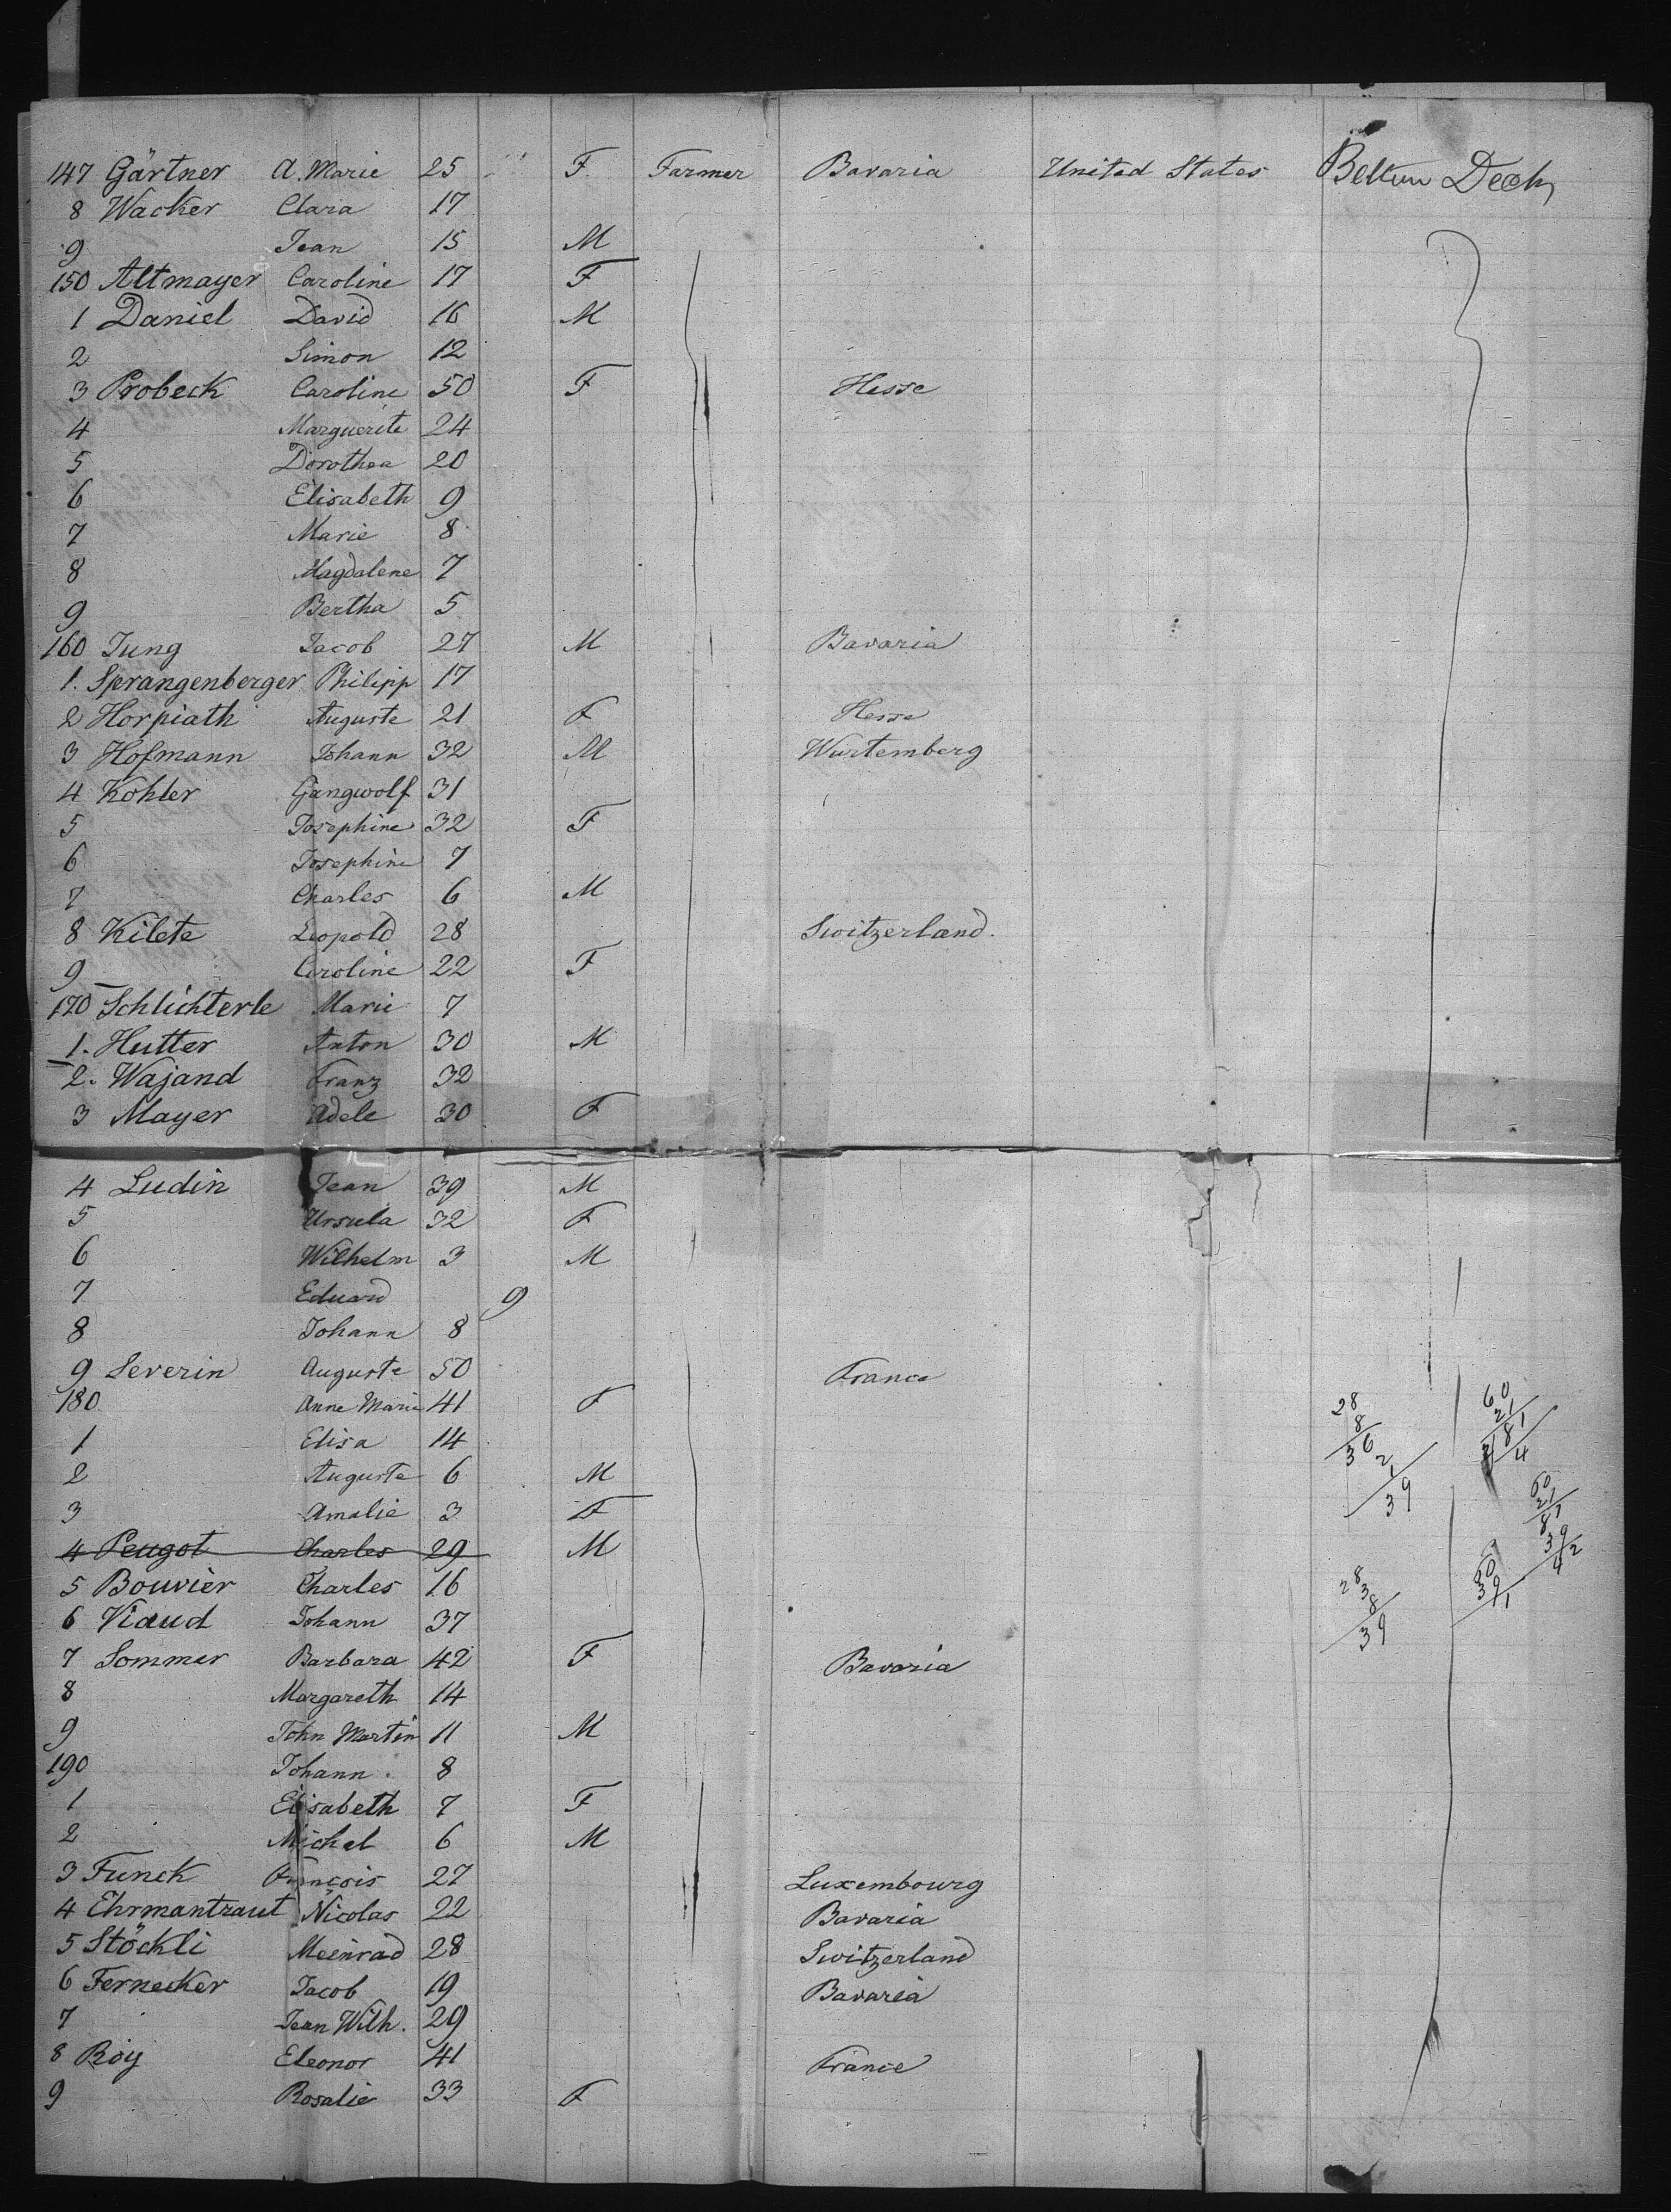 147 Gärtner A. Marie 25 F. Farmer Bavaria United States
8 Wacker Clara 17
9 Jean 15 M
150 Altmayer Caroline 17 F
1 Daniel David 16 M
2 Simon 12
3 Probeck Caroline 50 F Hesse
4 Marguerite 24
5 Dorothea 20
6 Elisabeth 9
7 Marie 8
8 Magdalene 7
9 Bertha 5
160 Jung Jacob 27 M Bavaria
1. Sprangenberger Philipp 17
2 Horpiath Auguste 21 F Hesse
3 Hofmann Johann 32 M Wurtemberg
4 Kohler Gangwolf 31
5 Josephine 32 F
6 Josephine 7
7 Charles 6 M
8 Kilete Leopold 28 Switzerland.
9 Caroline 22 F
170 Schlichterle Marie 7
1. Hutter Anton 30 M
2. Wajand Franz 32
3 Mayer Adele 30 F
4 Ludin Jean 39 M
5 Ursula 32 F
6 Wilhelm 3 M
7 Eduard 9
8 Johann 8
9 Severin Auguste 50 France
180 Anne Marie 41 F
1 Elisa 14
2 Auguste 6 M
3 Amalie 3 F
4 Peugot Charles 29 M
5 Bouvier Charles 16
6 Viaud Johann 37
7 Sommer Barbara 42 F Bavaria
8 Margareth 14
9 John Martin 11 M
190 Johann 8
1 Elisabeth 7 F
2 Michel 6 M
3 Funck François 27 Luxembourg
4 Ehrmantraut Nicolas 22 Bavaria
5 Stöckli Meinrad 28 Switzerland
6 Fernecker Jacob 19 Bavaria
7 Jean Wilh. 29
8 Roy Eleonor 41 France
9 Rosalie 33 F
28
8
36
39